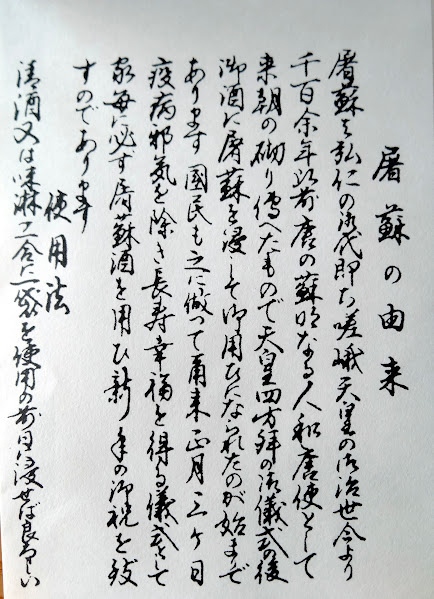 屠蘇の由来
屠蘇は弘仁の御代即ち嵯峨天皇の御治世今より
千百余年以前唐の蘇明なる人和唐使として
来朝の砌り傳へたもので天皇四方拝の御儀式の後
御酒に屠蘇を浸して御用ひになられたのが始まりで
あります 國民も之に倣つて爾来正月三ケ日
疫病邪気を除き長寿幸福を得る儀式として
家毎に必す屠蘇酒を用ひ新年の御祝を致
すのであります
使用法
清酒又は味淋二合に一袋を使用の前日に浸せば良ろしい